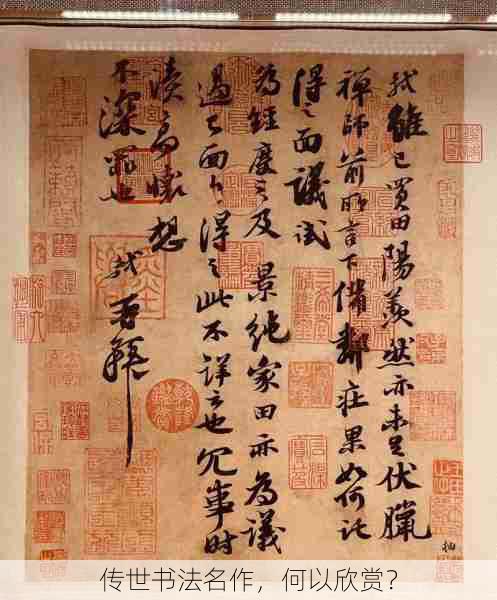 軾雖已買田陽羨然亦未足伏臘
禪師前所言下備鄰莊果如何託
得之面議試
為經度之及 景純家田亦為議
過已面白得之此不詳云也冗事時
瀆高懷想
不深罪也
軾再拜
传世书法名作，何以欣赏？